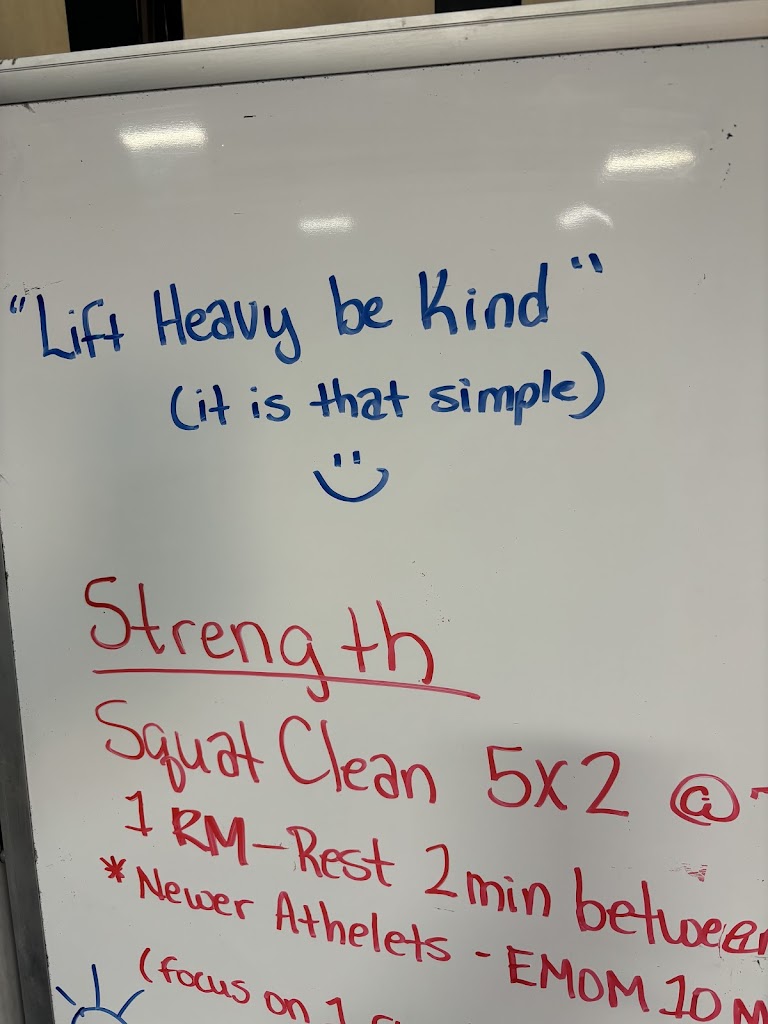 "Lift Heavy be Kind"
(it is that simple)
Strength
Squat Clean 5x2 @
1 RM - Rest 2 min between
* Newer Athelets - EMOM 10
(focus on 1